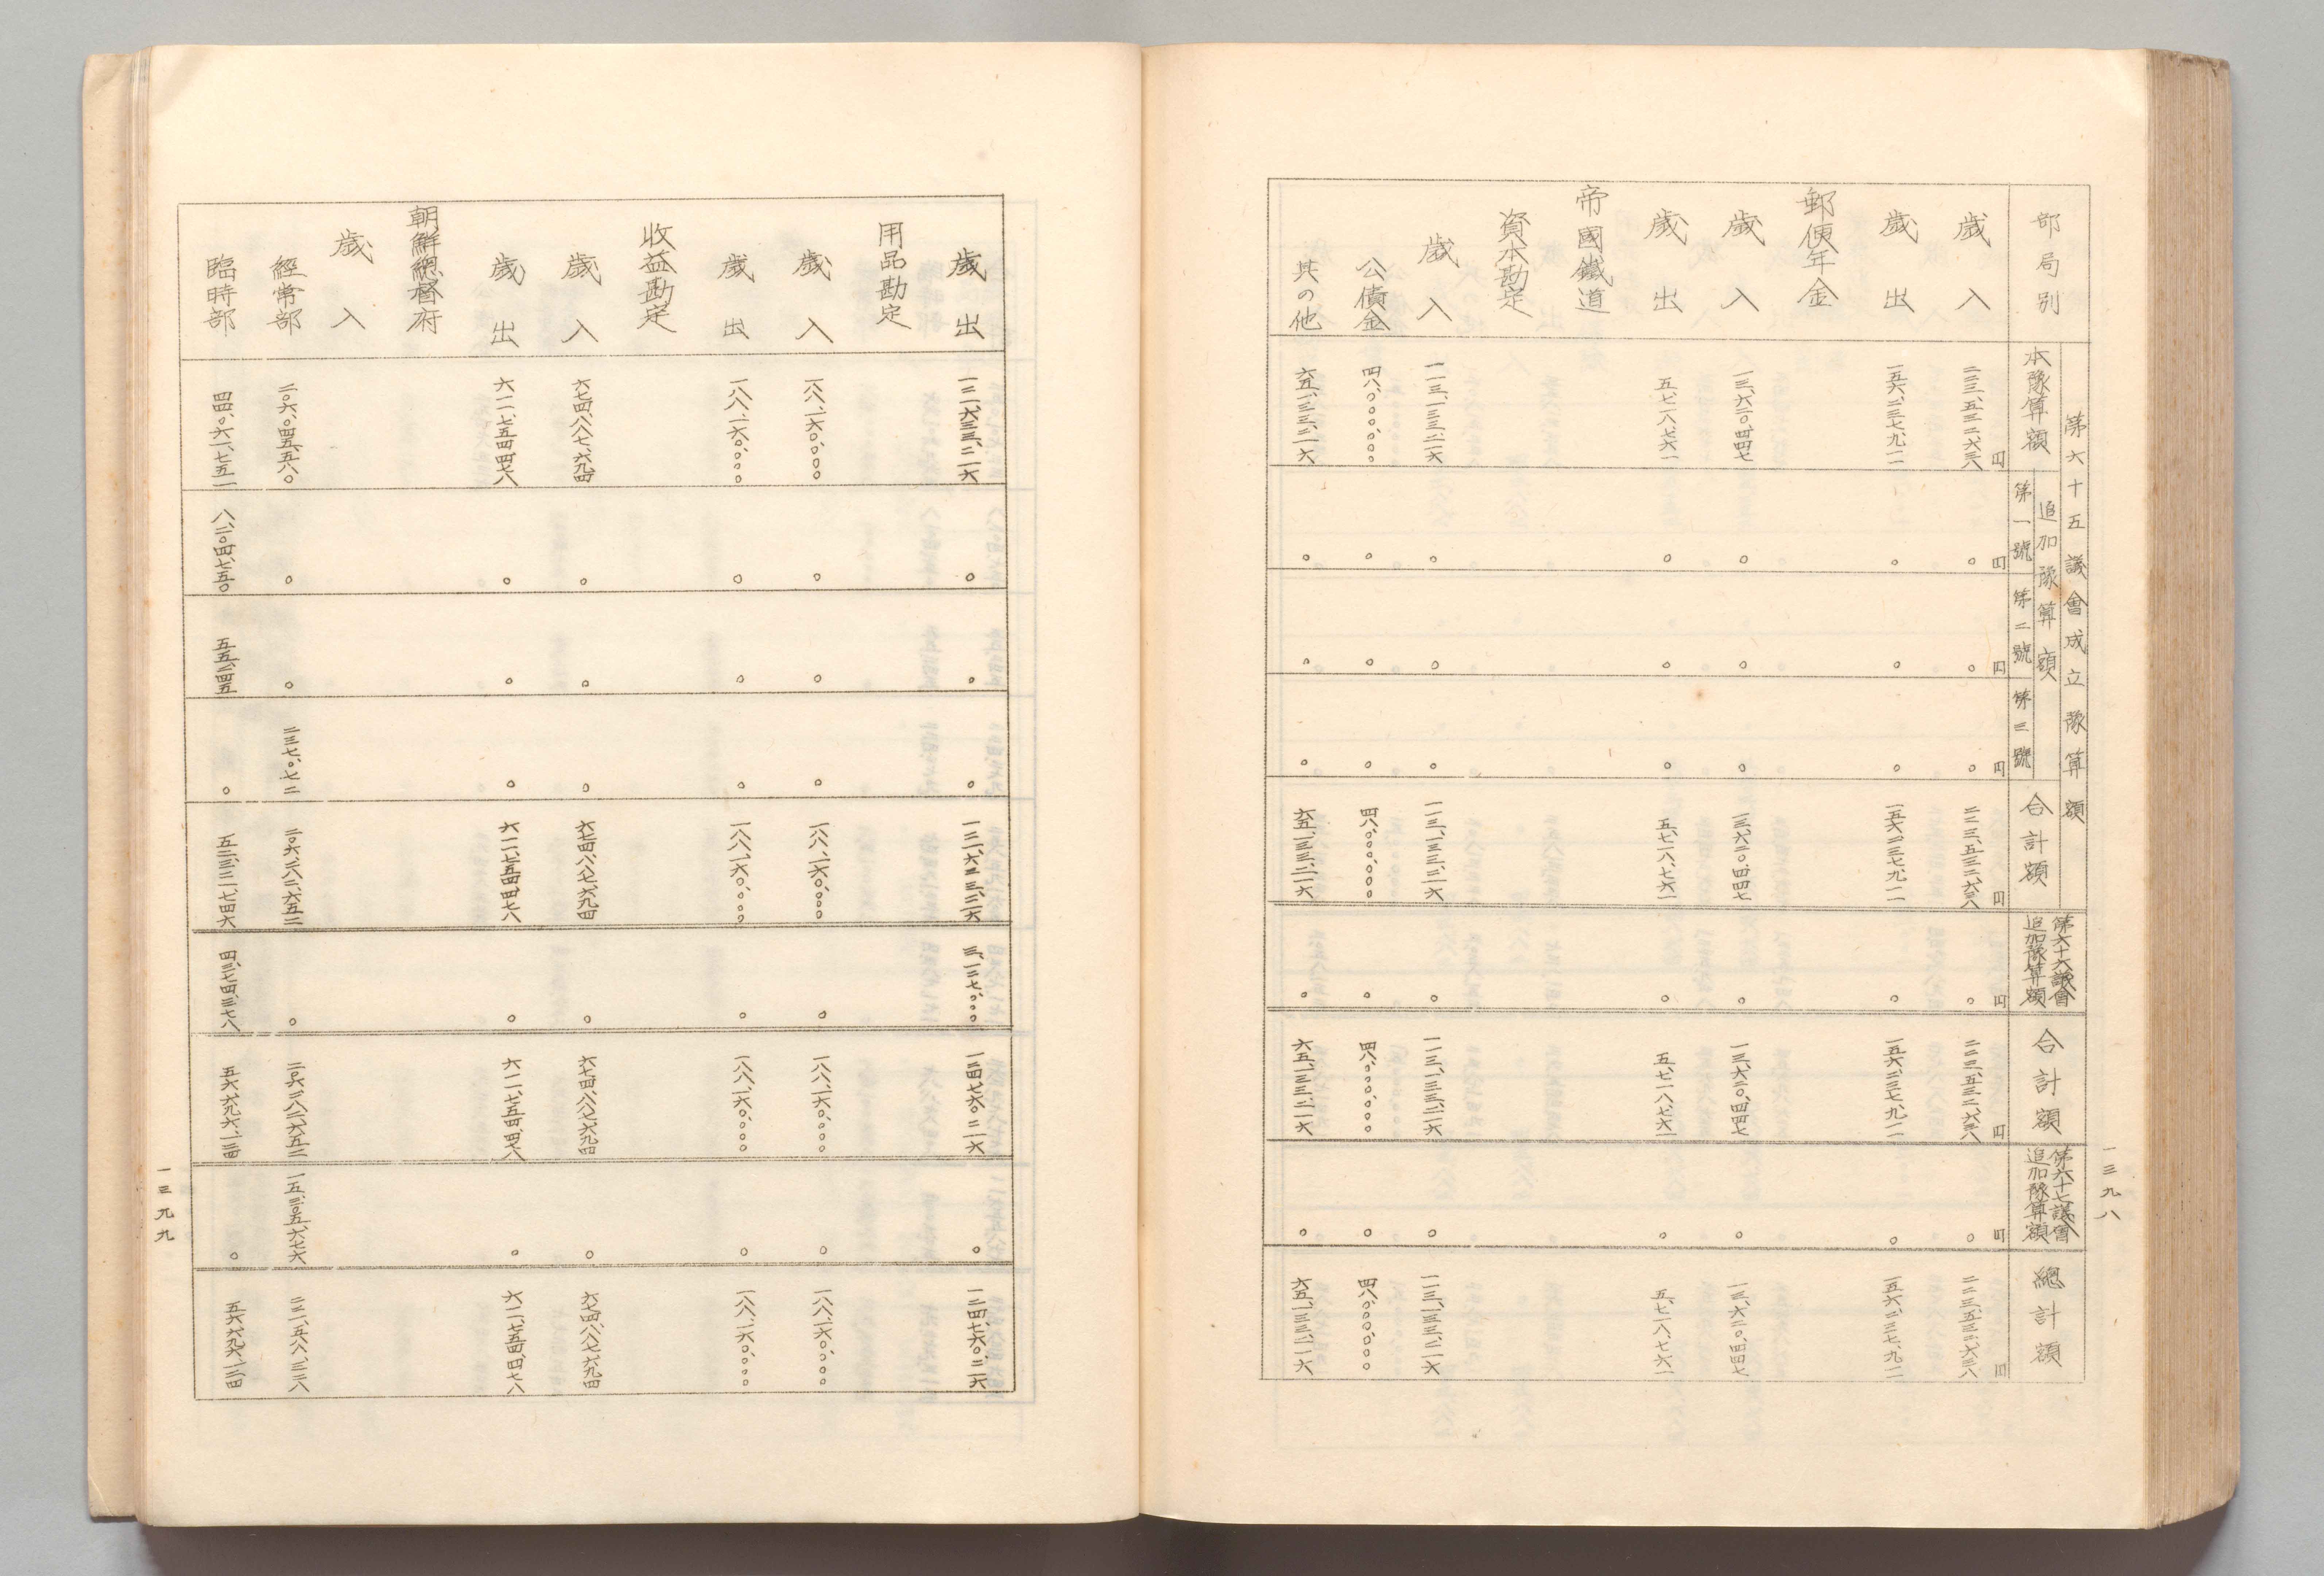 一三九八
部局別
第六十五議會成立豫算額
本豫算額
追加豫算額
第一號 第二號 第三號
合計額
第六十六議會
追加豫算額
合計額
第六十七議會
追加豫算額
總計額
歲入 二二三、五三二、六三八円 〇円 〇円 〇円 二二三、五三二、六三八円 〇円 二二三、五三二、六三八円 〇円 二二三、五三二、六三八円
歲出 一五六、二三七、九一一 〇 〇 〇 一五六、二三七、九一一 〇 一五六、二三七、九一一 〇 一五六、二三七、九一一
郵便年金
歲入 一三、六二〇、四四七 〇 〇 〇 一三、六二〇、四四七 〇 一三、六二〇、四四七 〇 一三、六二〇、四四七
歲出 五、七一八、七六一 〇 〇 〇 五、七一八、七六一 〇 五、七一八、七六一 〇 五、七一八、七六一
帝國鐵道
資本勘定
歲入 一一三、一三三、二一六 〇 〇 〇 一一三、一三三、二一六 〇 一一三、一三三、二一六 〇 一一三、一三三、二一六
公債金 四八、〇〇〇、〇〇〇 〇 〇 〇 四八、〇〇〇、〇〇〇 〇 四八、〇〇〇、〇〇〇 〇 四八、〇〇〇、〇〇〇
其の他 六五、一三三、二一六 〇 〇 〇 六五、一三三、二一六 〇 六五、一三三、二一六 〇 六五、一三三、二一六
歲出 一二一、六三三、二一六 〇 〇 〇 一二一、六三三、二一六 三、一二七、〇〇〇 一二四、七六〇、二一六 〇 一二四、七六〇、二一六
用品勘定
歲入 一八八、一六〇、〇〇〇 〇 〇 〇 一八八、一六〇、〇〇〇 〇 一八八、一六〇、〇〇〇 〇 一八八、一六〇、〇〇〇
歲出 一八八、一六〇、〇〇〇 〇 〇 〇 一八八、一六〇、〇〇〇 〇 一八八、一六〇、〇〇〇 〇 一八八、一六〇、〇〇〇
收益勘定
歲入 六七四、八八七、六九四 〇 〇 〇 六七四、八八七、六九四 〇 六七四、八八七、六九四 〇 六七四、八八七、六九四
歲出 六一一、七五四、四七八 〇 〇 〇 六一一、七五四、四七八 〇 六一一、七五四、四七八 〇 六一一、七五四、四七八
朝鮮總督府
歲入
經常部 二〇六、〇四五、五八〇 〇 〇 二三七、〇七二 二〇六、二八二、六五二 〇 二〇六、二八二、六五二 一五、三〇五、六七六 二二一、五八八、三二八
臨時部 四四、〇六一、七五一 八、二〇四、七五〇 五五、二四五 〇 五二、三二一、七四六 四、三七四、三七八 五六、六九六、一二四 〇 五六、六九六、一二四
一三九九